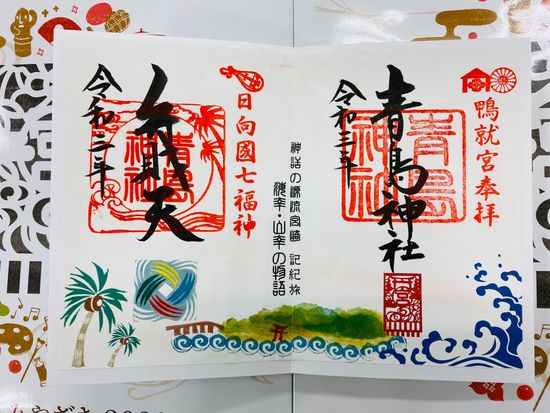 鴨就宮奉拝
青島神社
青島神社
令和三年
神話の源流宮崎 記紀旅
海幸・山幸の物語
日向國七福神
弁財天
青島神社
令和三年